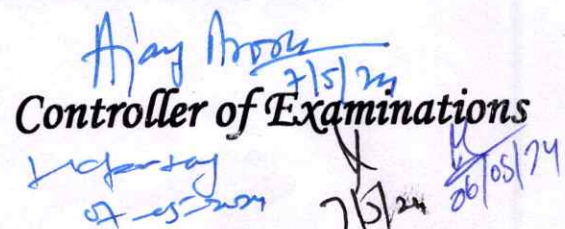 Ajay Arora
7/5/24
Controller of Examinations
07-05-2024
7/5/24
06/05/24